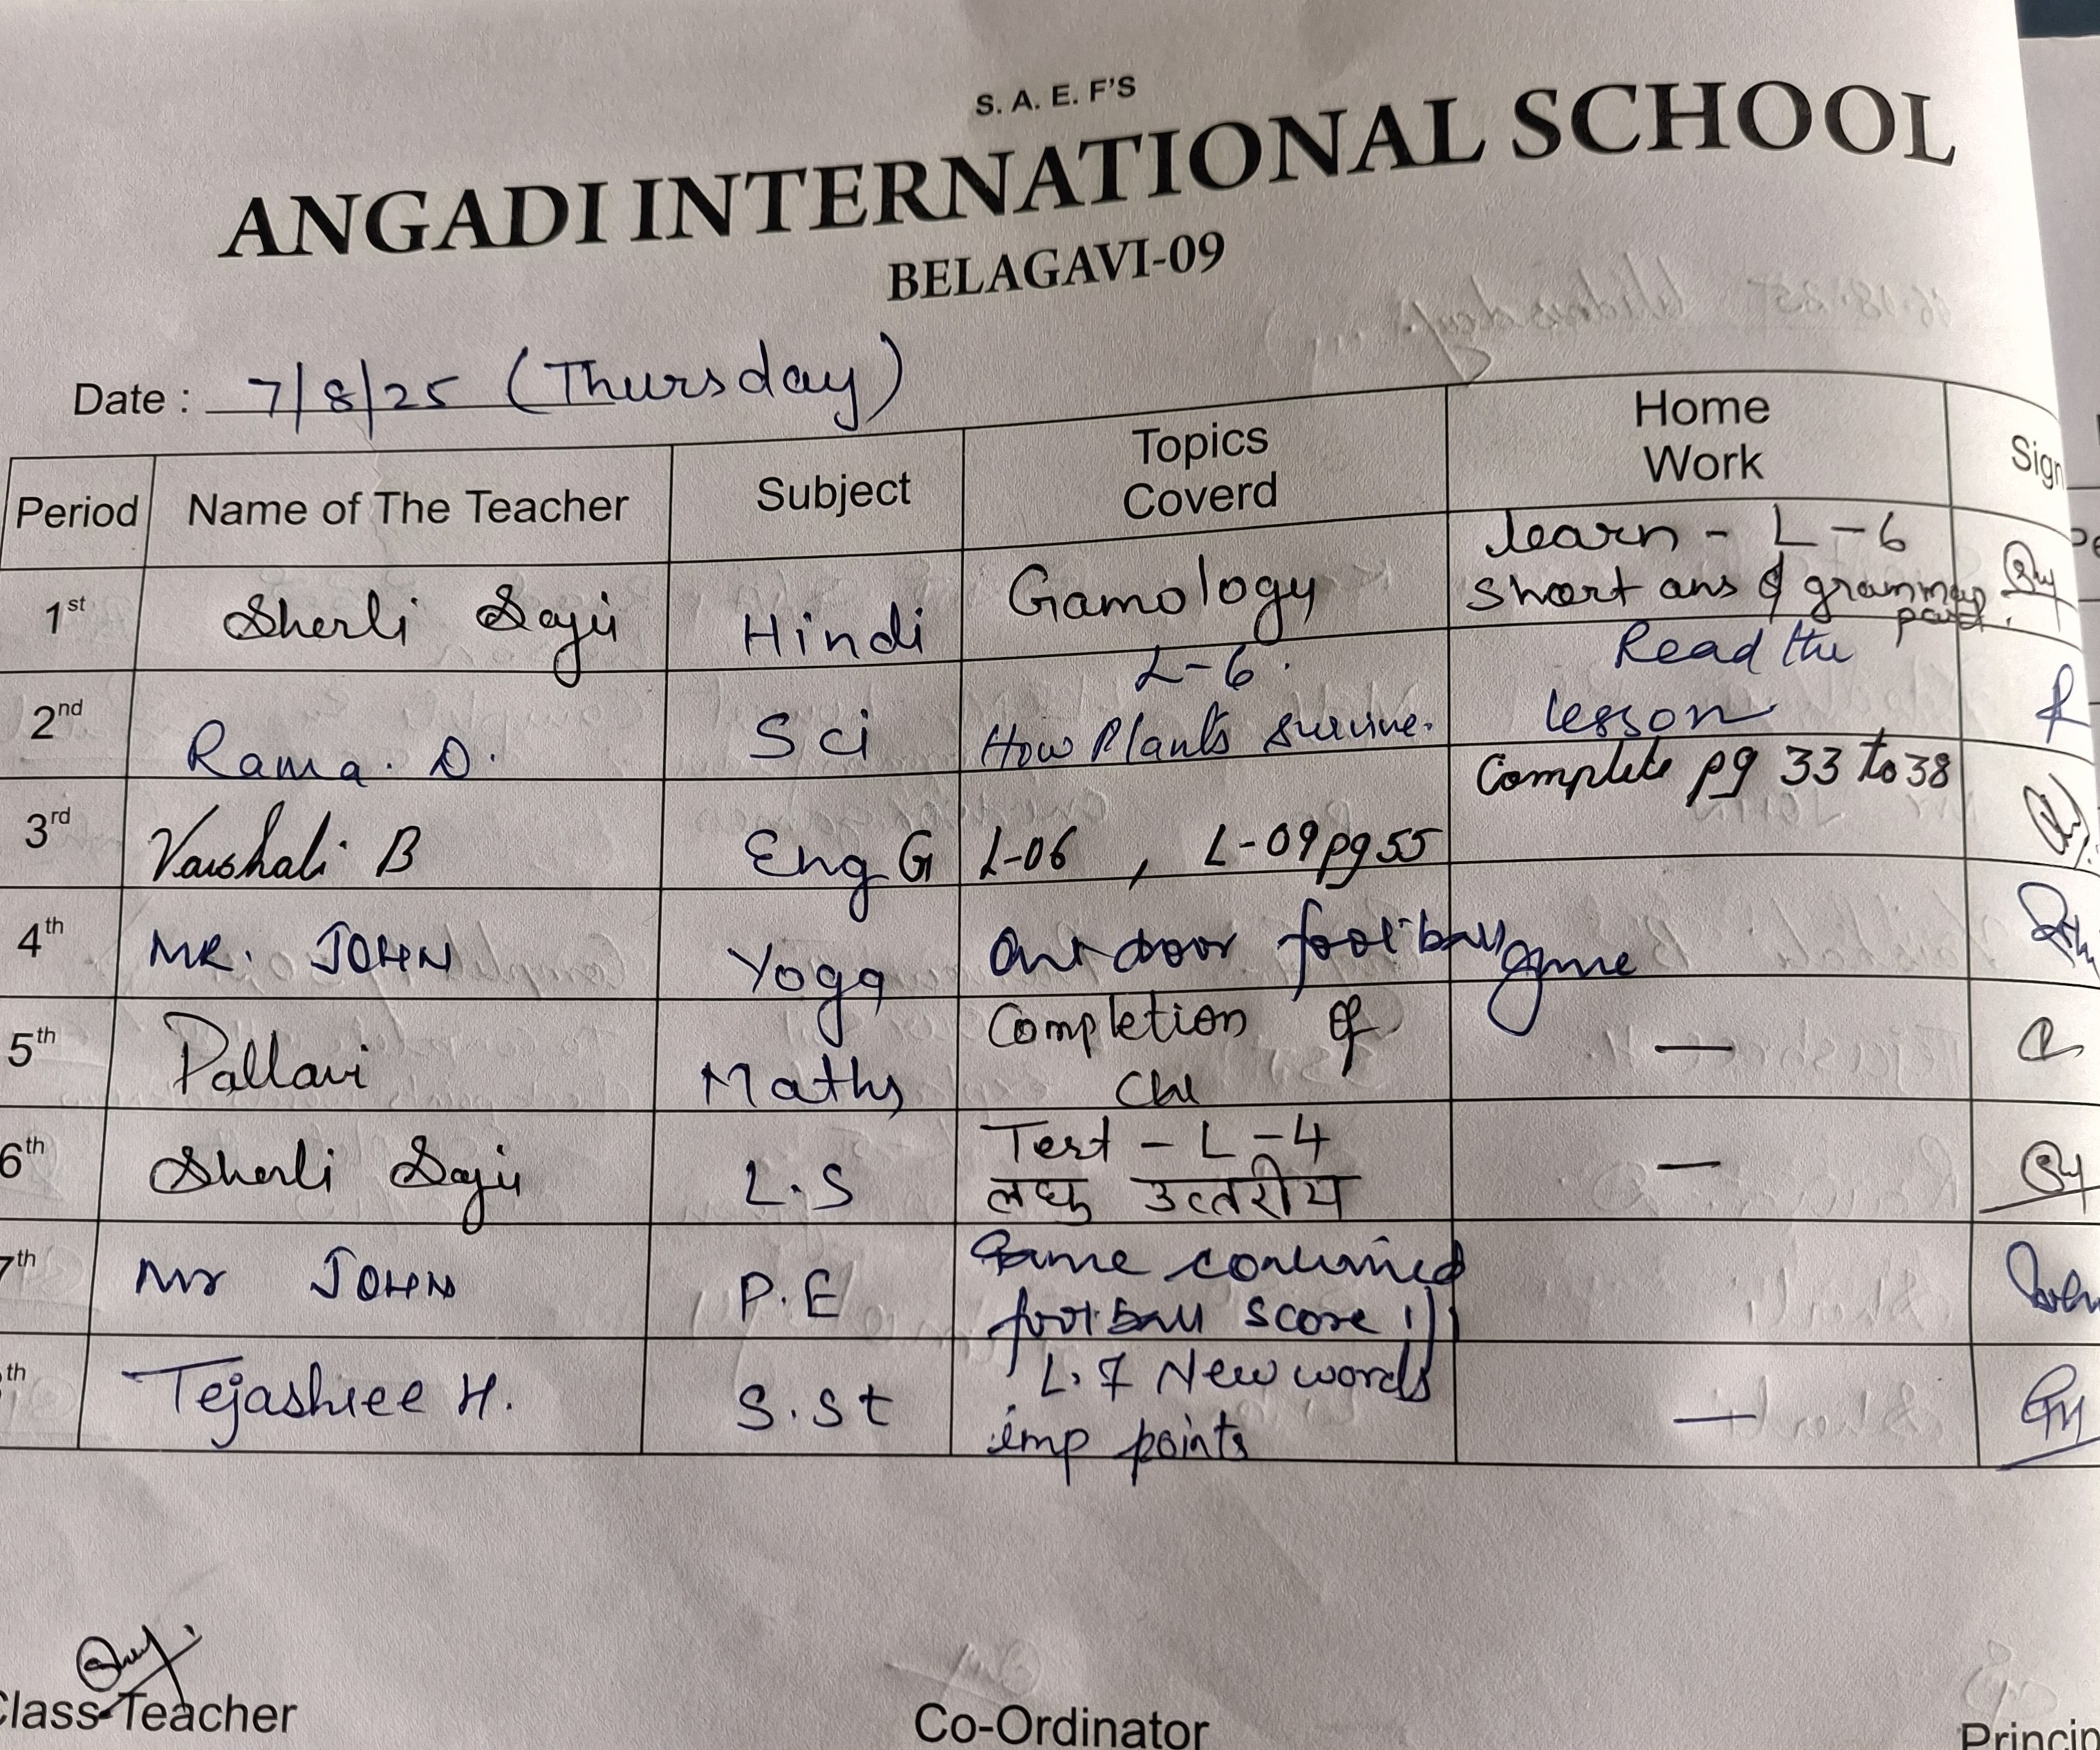 S. A. E. F'S
ANGADI INTERNATIONAL SCHOOL
BELAGAVI-09
Date : 7/8/25 (Thursday)
Period Name of The Teacher Subject Topics Coverd Home Work Sign
1st Sherli Saju Hindi Gamology learn - L-6 short ans & grammar part.
2nd Rama. D. Sci L-6. How Plants survive. Read the lesson
3rd Vaishali B Eng G L-06 , L-09 pg 55 Complete pg 33 to 38
4th MR. JOHN Yoga Out door foot ball game
5th Pallavi Maths Completion of —
6th Sherli Saju L.S Test - L-4 लघु उत्तरीय —
7th Mr JOHN P.E Game continued foot ball score
th Tejashree H. S.St L.7 New words imp points —
Class Teacher Co-Ordinator Princip